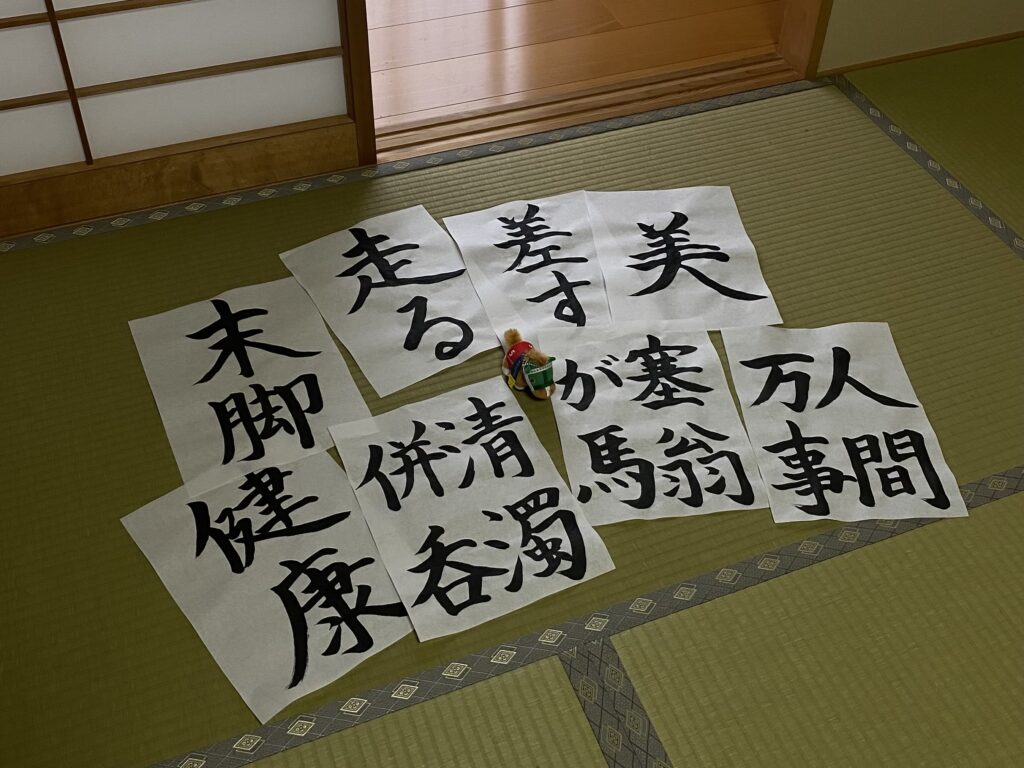 美
差す
走る
末脚
人間
万事
塞翁
が馬
清濁
併呑
健康